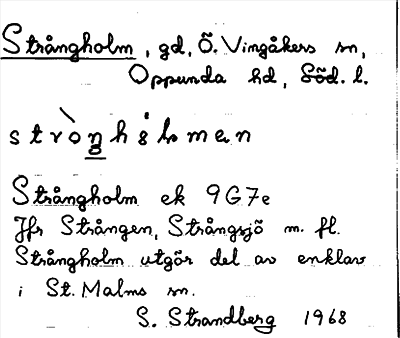 Strångholm, gd, Ö. Vingåkers sn,
Oppunda hd, Söd. l.
Strångholm ek 9G7e
Jfr Strången, Strångsjö m. fl.
Strångholm utgör del av enklav
i St. Malms sn.
S. Strandberg 1968